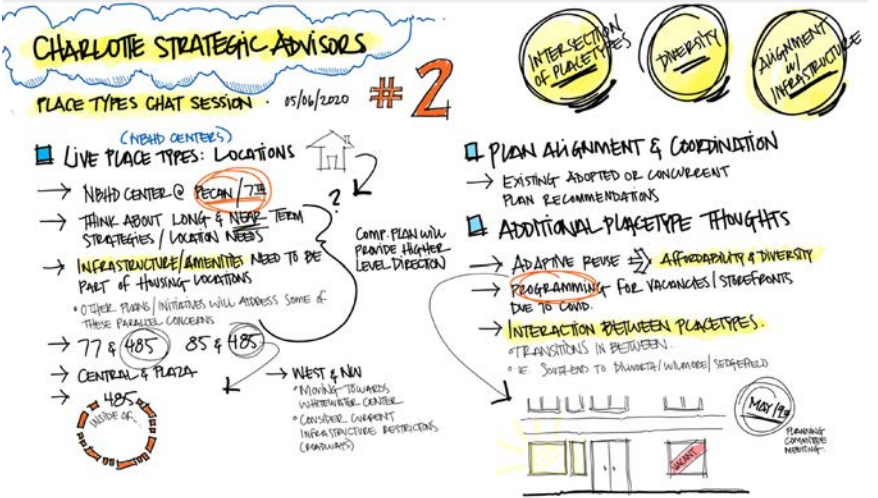 CHARLOTTE STRATEGIC ADVISORS
PLACE TYPES CHAT SESSION · 05/06/2020
#2
INTERSECTION
OF PLACETYPES
DIVERSITY
ALIGNMENT
w/
INFRASTRUCTURE
(NBHD CENTERS)
LIVE PLACE TYPES: LOCATIONS
→ NBHD CENTER @ PECAN/7TH
→ THINK ABOUT LONG & NEAR TERM
STRATEGIES/LOCATION NEEDS
→ INFRASTRUCTURE/AMENITIES NEED TO BE
PART OF HOUSING LOCATIONS
• OTHER PLANS/INITIATIVES WILL ADDRESS SOME OF
THESE PARALLEL CONCERNS
?
COMP. PLAN WILL
PROVIDE HIGHER
LEVEL DIRECTION
→ 77 & 485 85 & 485
→ CENTRAL & PLAZA
→ 485
INSIDE OF...
→ WEST & NW
• MOVING TOWARDS
WHITEWATER CENTER
• CONSIDER CURRENT
INFRASTRUCTURE RESTRICTIONS
(ROADWAYS)
PLAN ALIGNMENT & COORDINATION
→ EXISTING ADOPTED OR CONCURRENT
PLAN RECOMMENDATIONS
ADDITIONAL PLACETYPE THOUGHTS
→ ADAPTIVE REUSE ⇒ AFFORDABILITY & DIVERSITY
→ PROGRAMMING FOR VACANCIES/STOREFRONTS
DUE TO COVID.
→ INTERACTION BETWEEN PLACETYPES.
• TRANSITIONS IN BETWEEN.
• IE. SOUTHEND TO DILWORTH/WILMORE/SEDGEFIELD
VACANT
MAY/19TH
PLANNING
COMMITTEE
MEETING.